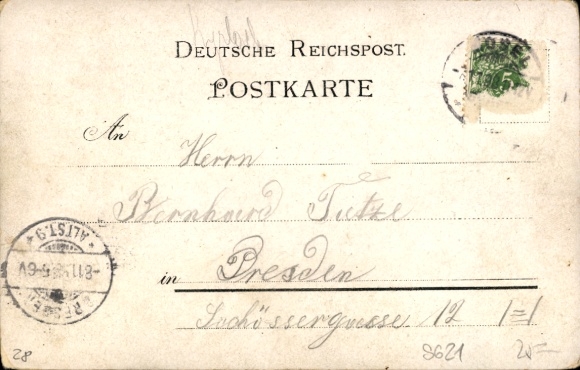 DEUTSCHE REICHSPOST.
POSTKARTE
An Herrn
Bernhard Tietze
in Dresden
Schössergasse 12 I=I
ALTST.9
8.11. 5-6V
DRESDEN
28
8621
25=